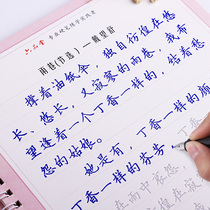 六品堂 专业硬笔练字实战者
雨巷(节选)—戴望舒
撑着油纸伞，独自彷徨在悠
长、悠长，又寂寥的雨巷，我希
望逢着一个丁香一样的，结着愁
怨的姑娘。
她是有，丁香一样的
丁香一样的芬芳，